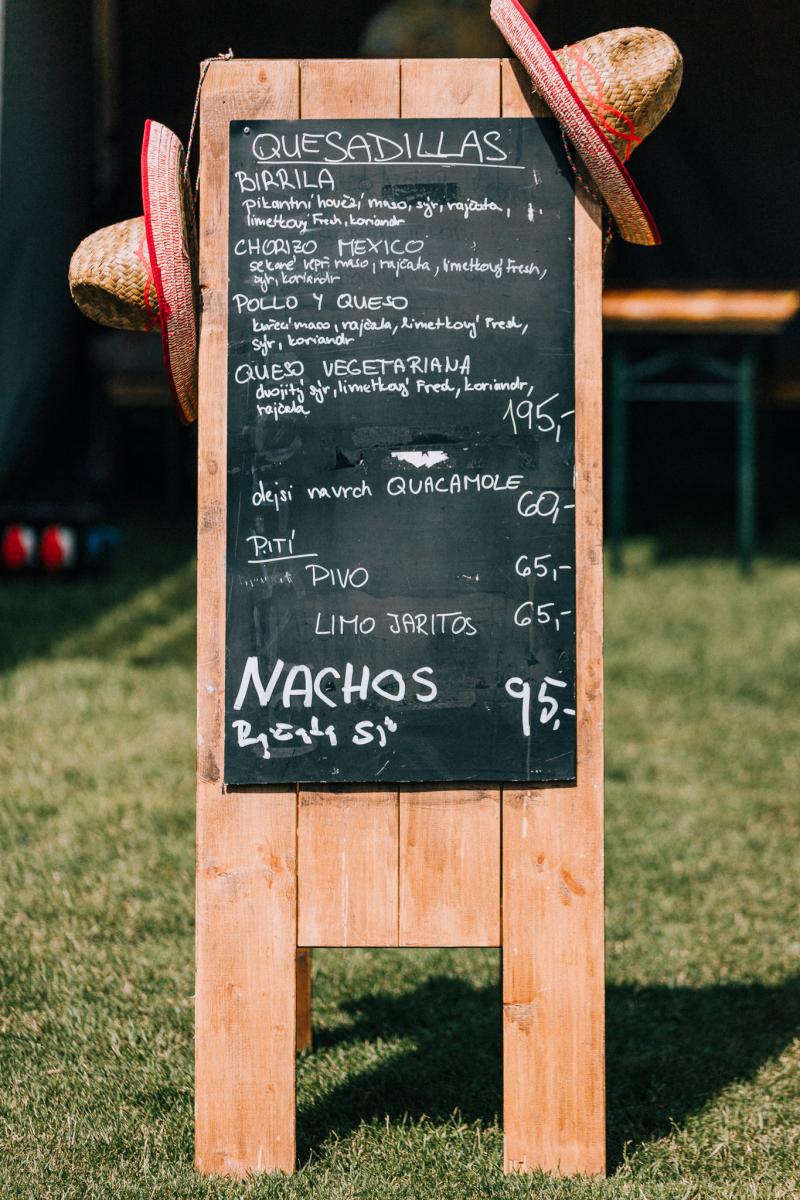 QUESADILLAS
BIRRILA
pikantní hovězí maso, sýr, rajčata,
limetkový Fresh, koriandr
CHORIZO MEXICO
sekané vepř maso, rajčata, limetkový fresh,
sýr, koriandr
POLLO Y QUESO
kuřecí maso, rajčata, limetkový Fresh,
sýr, koriandr
QUESO VEGETARIANA
dvojitý sýr, limetkový Fred, koriandr,
rajčata
195,-
dejsi navrch QUACAMOLE
60,-
PITÍ
PIVO 65,-
LIMO JARITOS 65,-
NACHOS 95,-
Rajčata Sýr